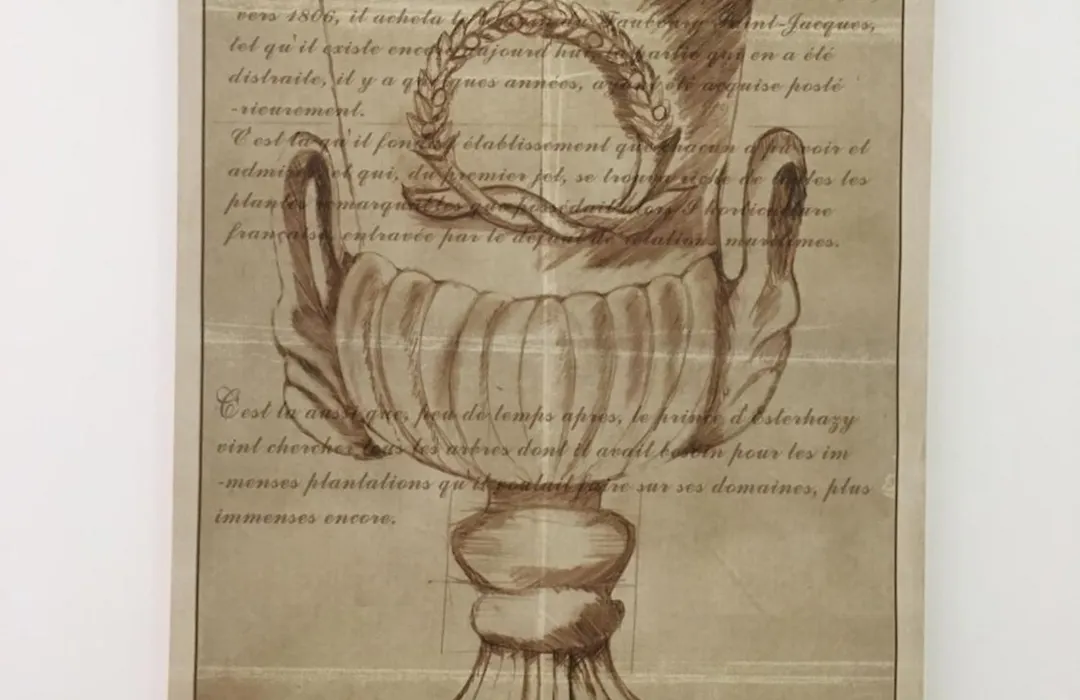 vers 1806, il acheta le terrain du Faubourg Saint-Jacques,
tel qu'il existe encore aujourd hui la partie qui en a été
distraite, il y a quelques années, ayant été acquise posté
-rieurement.
C'est la qu'il fonda l établissement que chacun a pu voir et
admirer et qui, du premier jet, se trouva riche de toutes les
plantes remarquables que possédait alors l horticulture
française, entravée par le défaut de relations maritimes.
C'est la aussi que, peu de temps après, le prince d'Esterhazy
vint chercher tous les arbres dont il avait besoin pour les im
-menses plantations qu'il voulait faire sur ses domaines, plus
immenses encore.